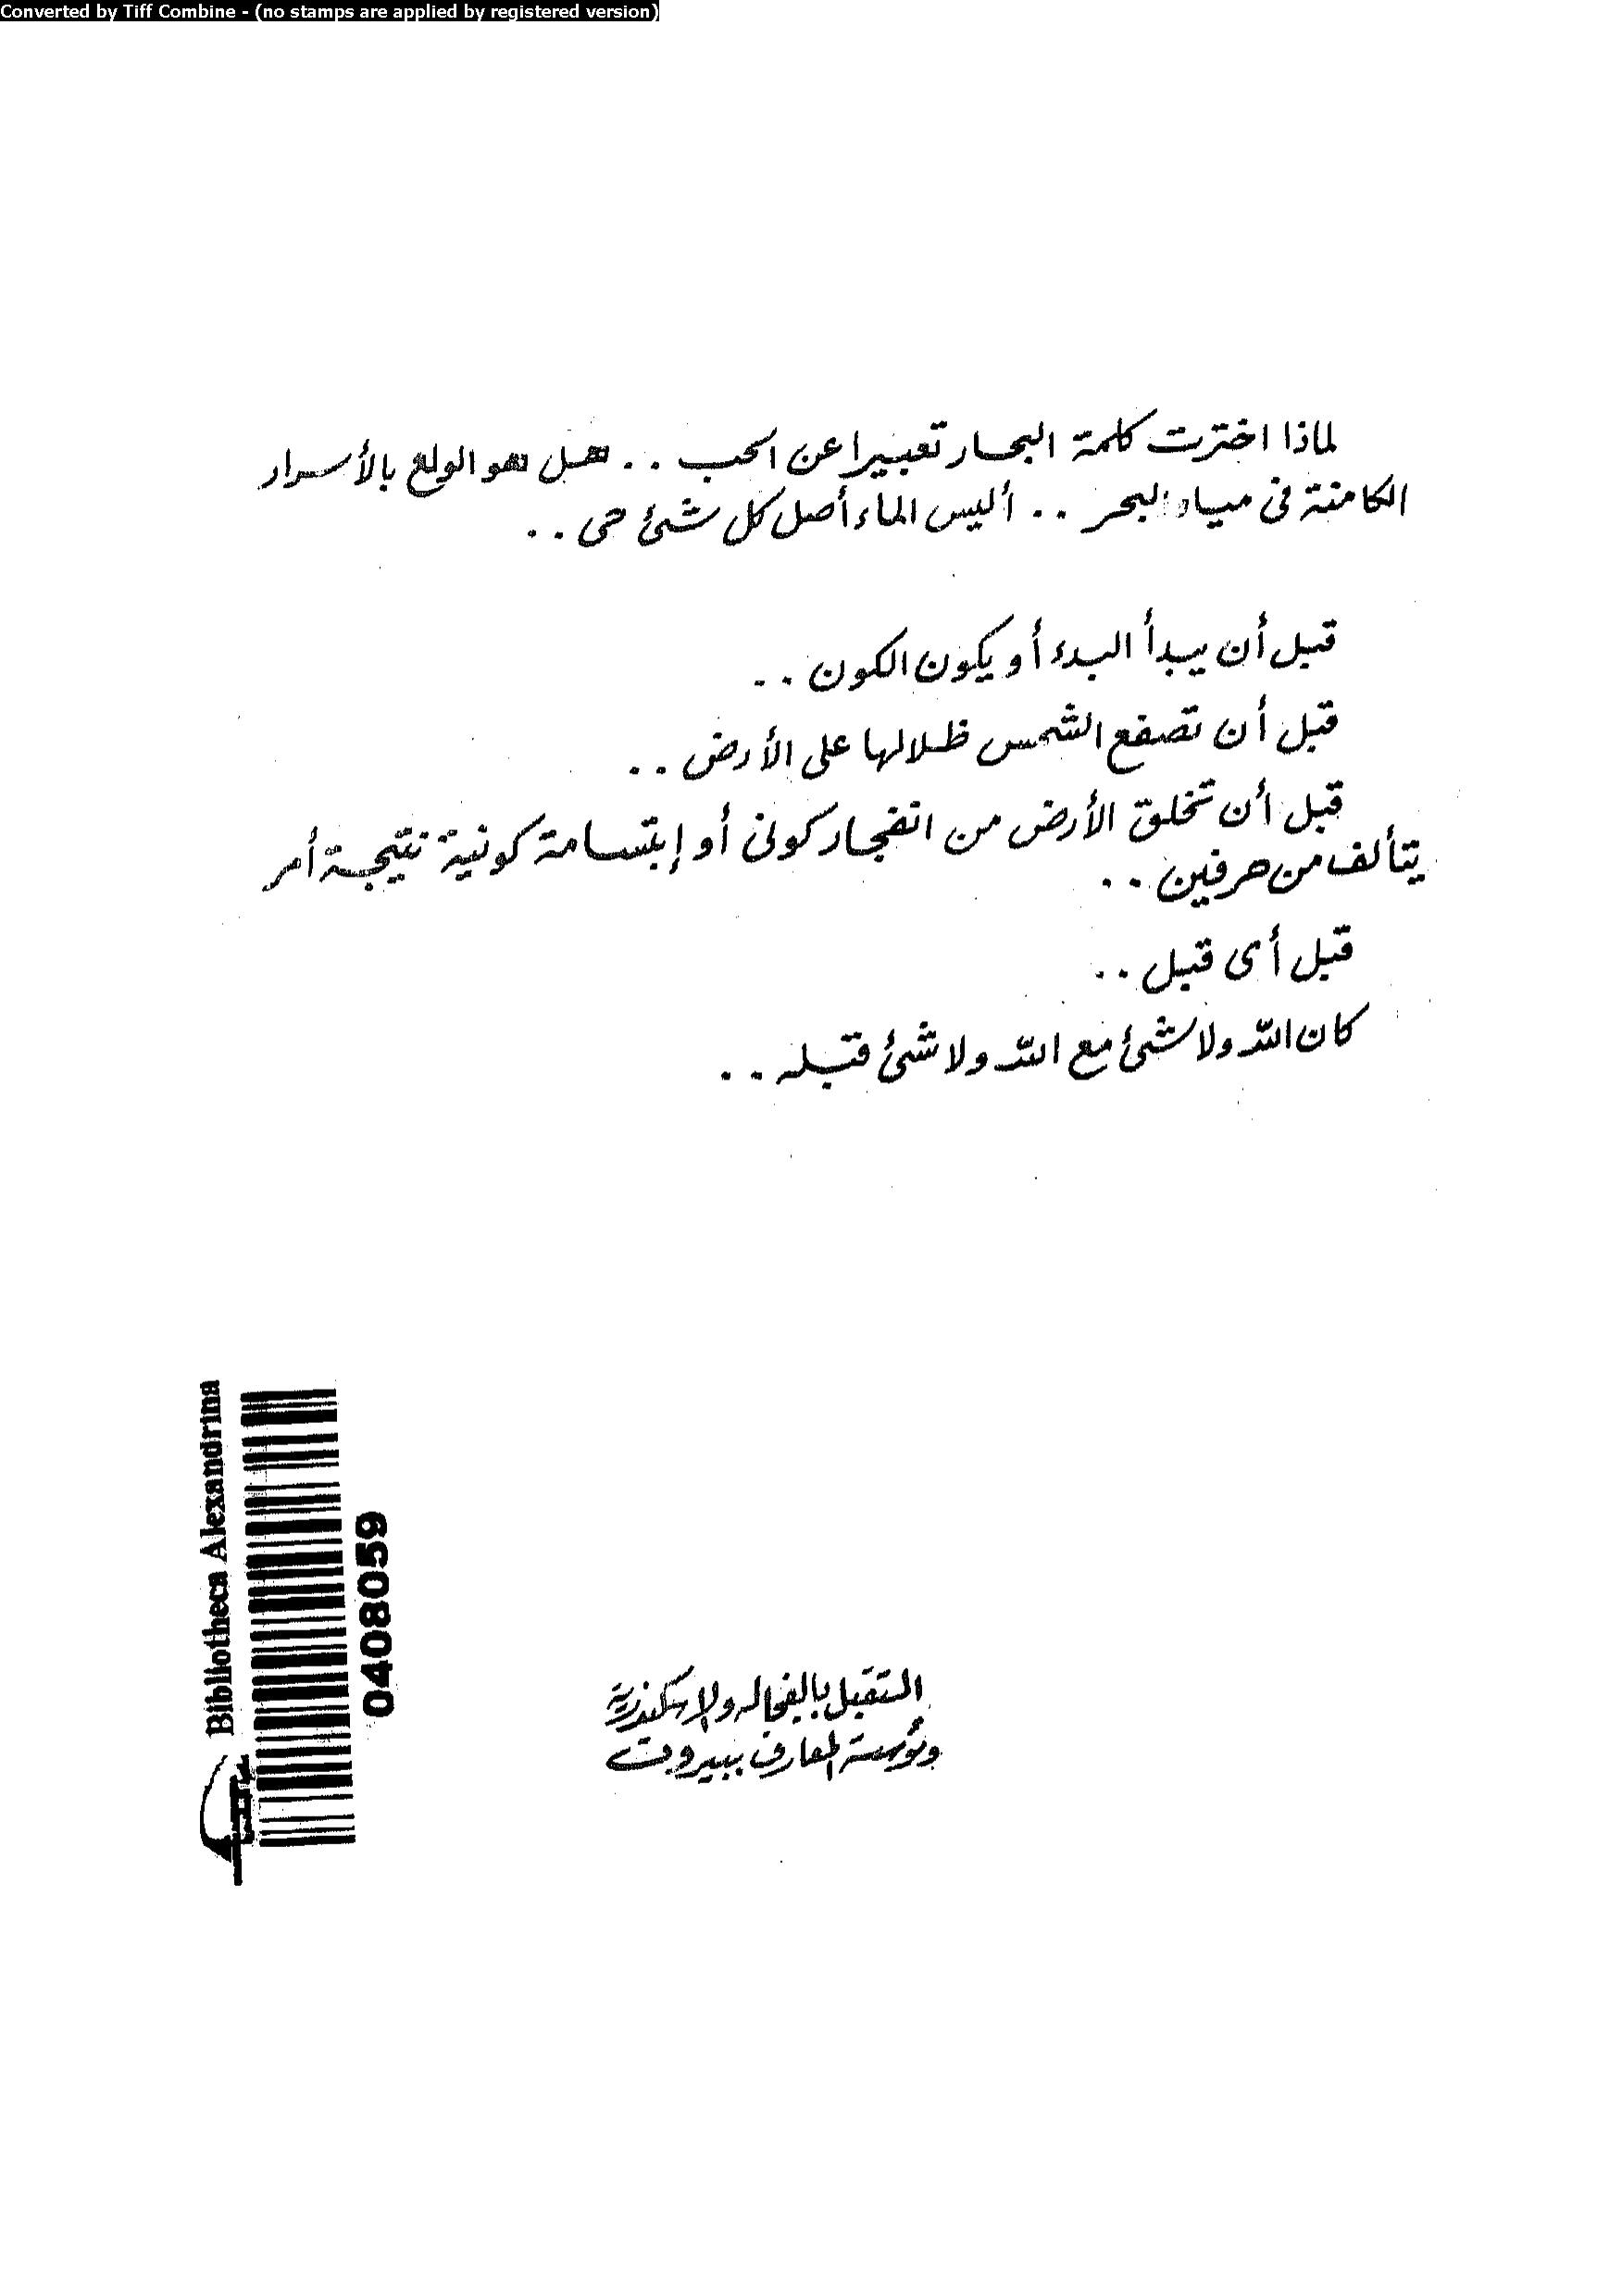 Converted by Tiff Combine - (no stamps are applied by registered version)
لماذا اخترت كلمة البحار تعبيرا عن الحب . . هل هو الولع بالأسرار
الكامنة فى مياه البحر . . أليس الماء أصل كل شئ حى . .
قبل أن يبدأ البدء أو يكون الكون . .
قبل أن تصفع الشمس ظلالها على الأرض . .
قبل أن تخلق الأرض من انفجار كونى أو إبتسامة كونية نتيجة أمر
يتألف من حرفين . .
قبل أى قبل . .
كان الله ولا شئ مع الله ولا شئ قبله . .
Bibliotheca Alexandrina
0408059
المستقبل بالفجاله والإسكندرية
ومؤسسة المعارف ببيروت